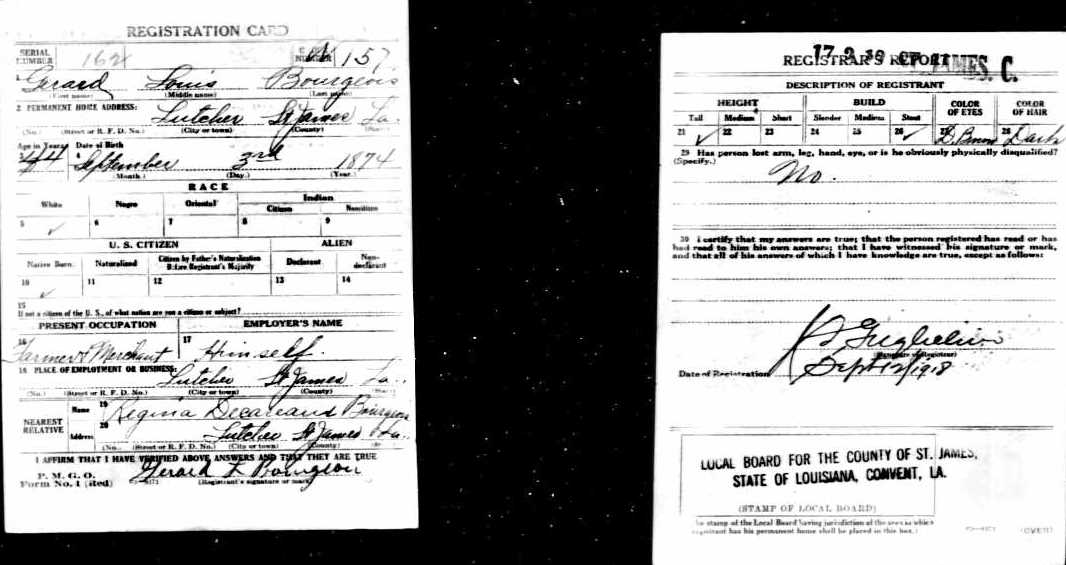 REGISTRATION CARD
SERIAL NUMBER 162
157
1 Gerard Louis Bourgeois
(First name) (Middle name) (Last name)
2 PERMANENT HOME ADDRESS:
Lutcher St James La.
(No.) (Street or R. F. D. No.) (City or town) (County) (State)
Age in Years Date of Birth
3 44 4 September 3rd 1874
(Month.) (Day.) (Year.)
RACE
White Negro Oriental Indian
Citizen Noncitizen
5 ✓ 6 7 8 9
U. S. CITIZEN ALIEN
Native Born Naturalized Citizen by Father's Naturalization Before Registrant's Majority Declarant Non-declarant
10 ✓ 11 12 13 14
15
If not a citizen of the U. S., of what nation are you a citizen or subject?
PRESENT OCCUPATION EMPLOYER'S NAME
16 Farmer & Merchant 17 Himself.
18 PLACE OF EMPLOYMENT OR BUSINESS:
Lutcher St James La.
(No.) (Street or R. F. D. No.) (City or town) (County) (State)
NEAREST RELATIVE
Name 19 Regina Decareaux Bourgeois
Address 20 Lutcher St James La.
(No.) (Street or R. F. D. No.) (City or town) (County)
I AFFIRM THAT I HAVE VERIFIED ABOVE ANSWERS AND THAT THEY ARE TRUE
P. M. G. O.
Form No. 1 Gerard L Bourgeois
(Registrant's signature or mark)
REGISTRAR'S REPORT
17 ST. JAMES. C.
DESCRIPTION OF REGISTRANT
HEIGHT BUILD COLOR OF EYES COLOR OF HAIR
Tall Medium Short Slender Medium Stout
21 ✓ 22 23 24 25 26 ✓ 27 D. Brown 28 Dark
29 Has person lost arm, leg, hand, eye, or is he obviously physically disqualified?
(Specify.) No.
30 I certify that my answers are true; that the person registered has read or has
had read to him his own answers; that I have witnessed his signature or mark,
and that all of his answers of which I have knowledge are true, except as follows:
(Signature of Registrar)
Date of Registration Sept 12/1918
LOCAL BOARD FOR THE COUNTY OF ST. JAMES,
STATE OF LOUISIANA, CONVENT, LA.
(STAMP OF LOCAL BOARD)
The stamp of the Local Board having jurisdiction of the area in which
registrant has his permanent home shall be placed in this box.)
(OVER)